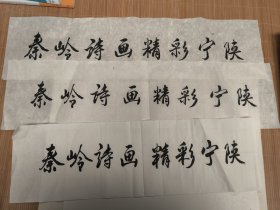 秦岭诗画精彩宁陕
秦岭诗画精彩宁陕
秦岭诗画精彩宁陕